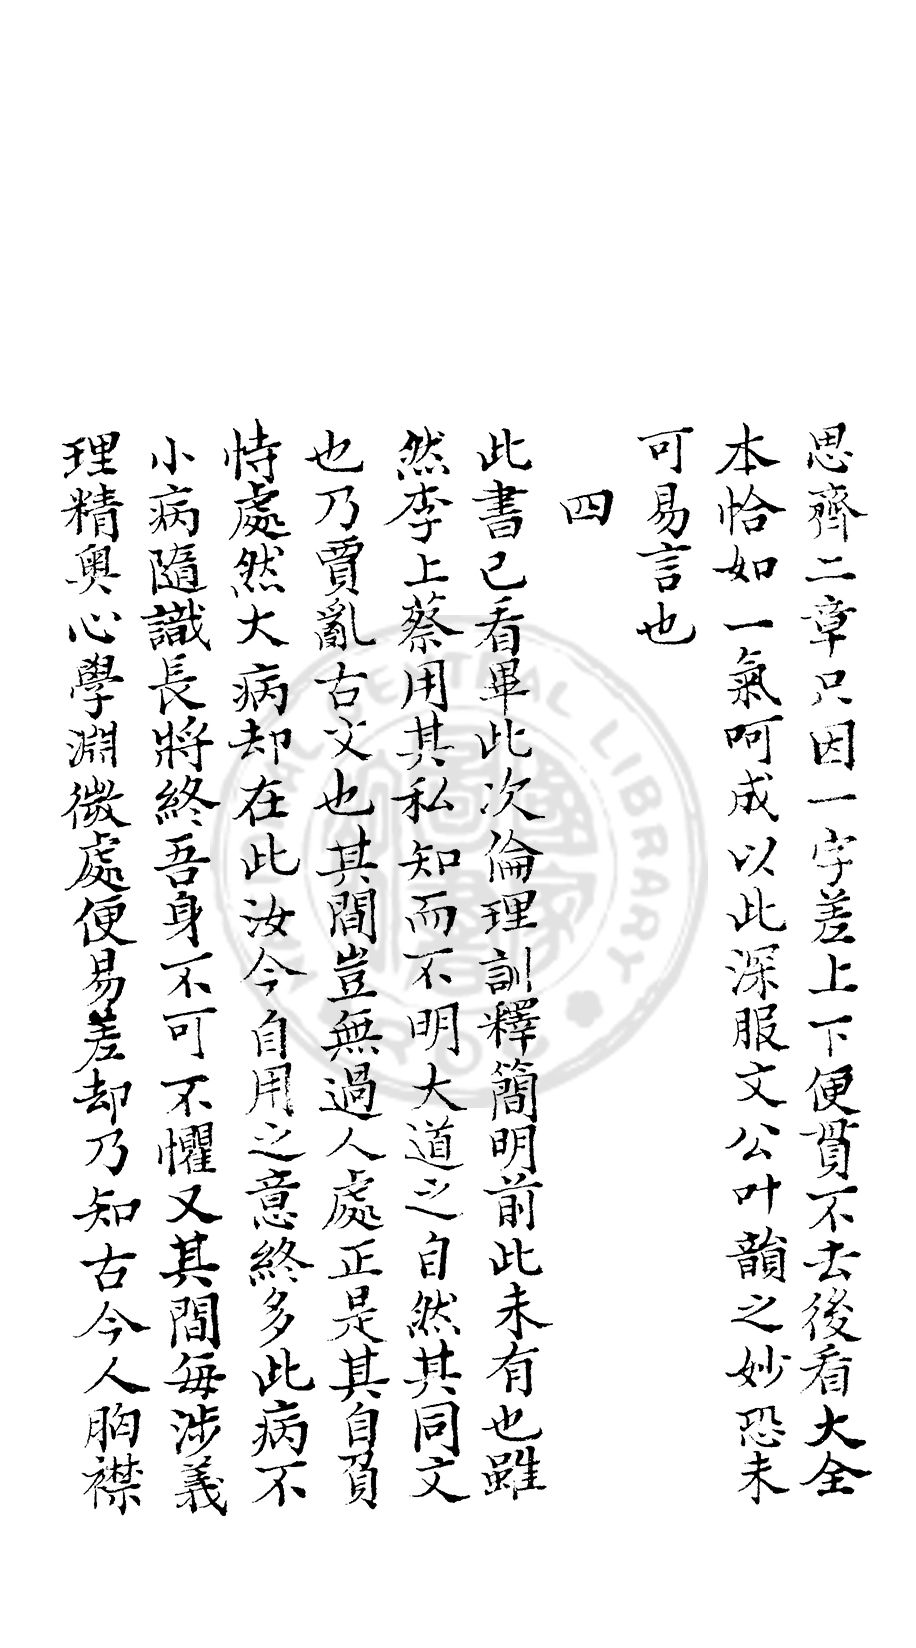 思齊二章只因一字差上下便貫不去後看大全
本恰如一氣呵成以此深服文公叶韻之妙恐未
可易言也
四
此書已看畢此次倫理訓釋簡明前此未有也雖
然李上蔡用其私知而不明大道之自然其同文
也乃賈亂古文也其間豈無過人處正是其自負
恃處然大病却在此汝今自用之意終多此病不
小病隨識長將終吾身不可不懼又其間每涉義
理精奧心學淵微處便易差却乃知古今人胸襟
CENTRAL LIBRARY